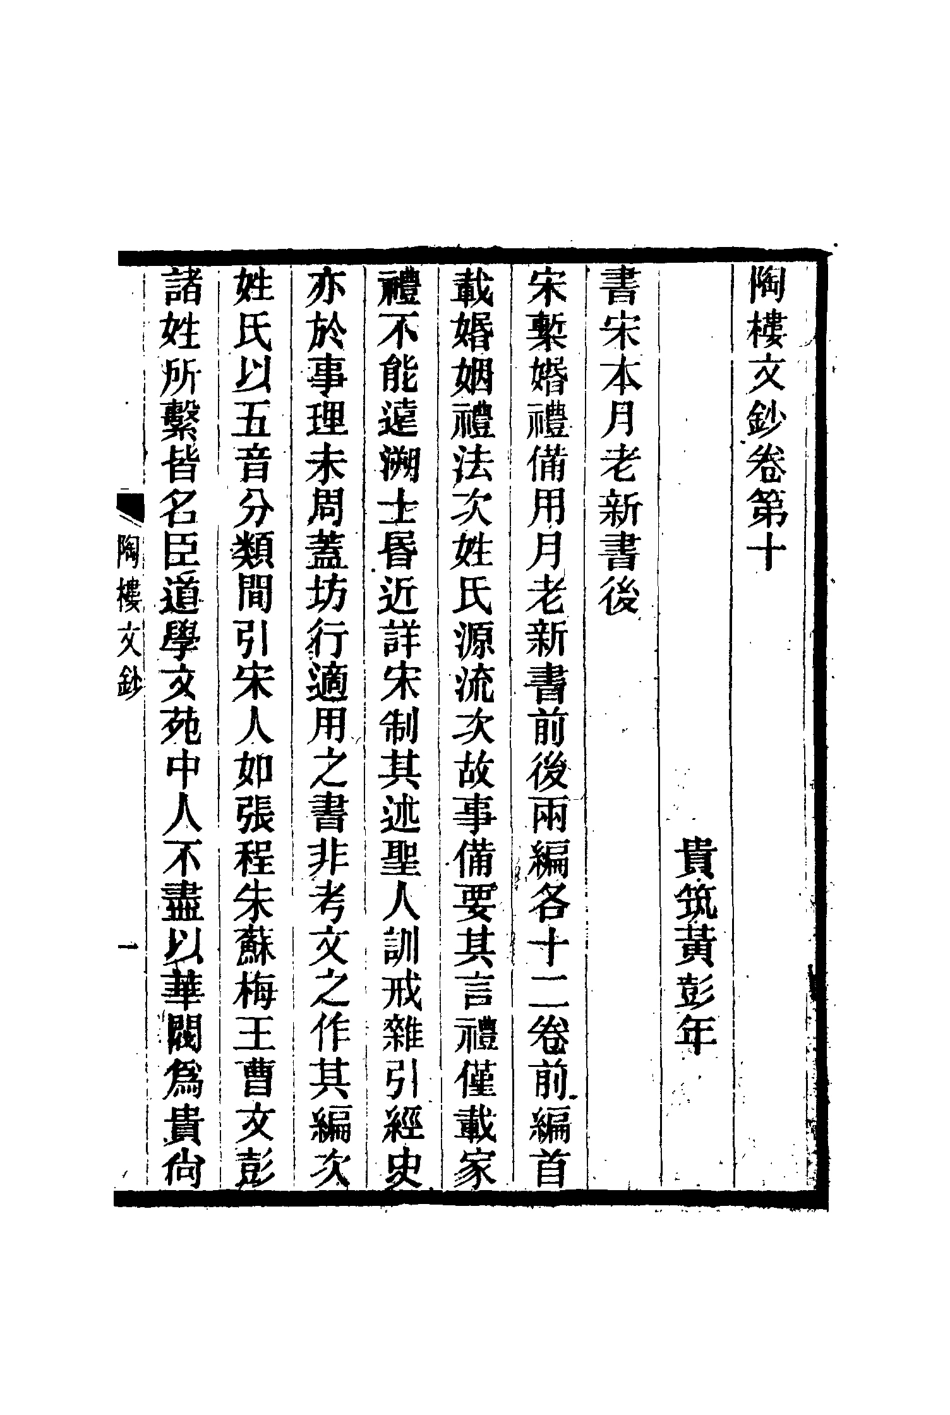 陶樓文鈔卷第十
貴筑黃彭年
書宋本月老新書後
宋槧婚禮備用月老新書前後兩編各十二卷前編首
載婚姻禮法次姓氏源流次故事備要其言禮僅載家
禮不能遠溯士昏近詳宋制其述聖人訓戒雜引經史
亦於事理未周蓋坊行適用之書非考文之作其編次
姓氏以五音分類間引宋人如張程朱蘇梅王曹文彭
諸姓所繫皆名臣道學文苑中人不盡以華閥爲貴尙
陶樓文鈔
一